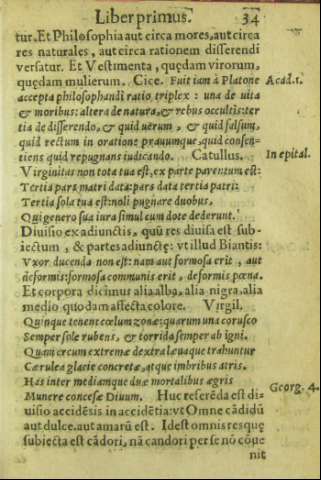 Liber primus. 34
tur. Et Philosophia aut circa mores, aut circa
res naturales, aut circa rationem disserendi
versatur. Et Vestimenta, quędam virorum,
quędam mulierum. Cice. Fuit iam à Platone Acad. 1.
accepta philosophandi ratio triplex: una de uita
& moribus: altera de natura, & rebus occultis: ter
tia de disserendo, & quid uerum, & quid falsum,
quid rectum in oratione prauumque, quid consen-
tiens quid repugnans iudicando. Catullus. In epital.
Virginitas non tota tua est, ex parte parentum est:
Tertia pars matri data: pars data tertia patri:
Tertia sola tua est: noli pugnare duobus,
Qui genero sua iura simul cum dote dederunt.
Diuisio ex adiunctis, quũ res diuisa est sub-
iectum, & partes adiunctę: vt illud Biantis:
Vxor ducenda non est: nam aut formosa erit, aut
deformis: formosa communis erit, deformis pœna.
Et corpora dicimus alia alba, alia nigra, alia
medio quodam affecta colore. Virgil.
Quinque tenent cœlum zonæ: quarum una corusco
Semper sole rubens, & torrida semper ab igni.
Quam circum extremæ dextra læuaque trahuntur
Cærulea glacie concretæ, atque imbribus atris.
Has inter mediamque duæ mortalibus ægris
Munere concessæ Diuum. Huc referẽda est di- Georg. 4.
uisio accidẽtis in accidẽtia: vt Omne cãdidũ
aut dulce. aut amarũ est. Id est omnis res quę
subiecta est cãdori, nã candori per se nõ cõue
nit